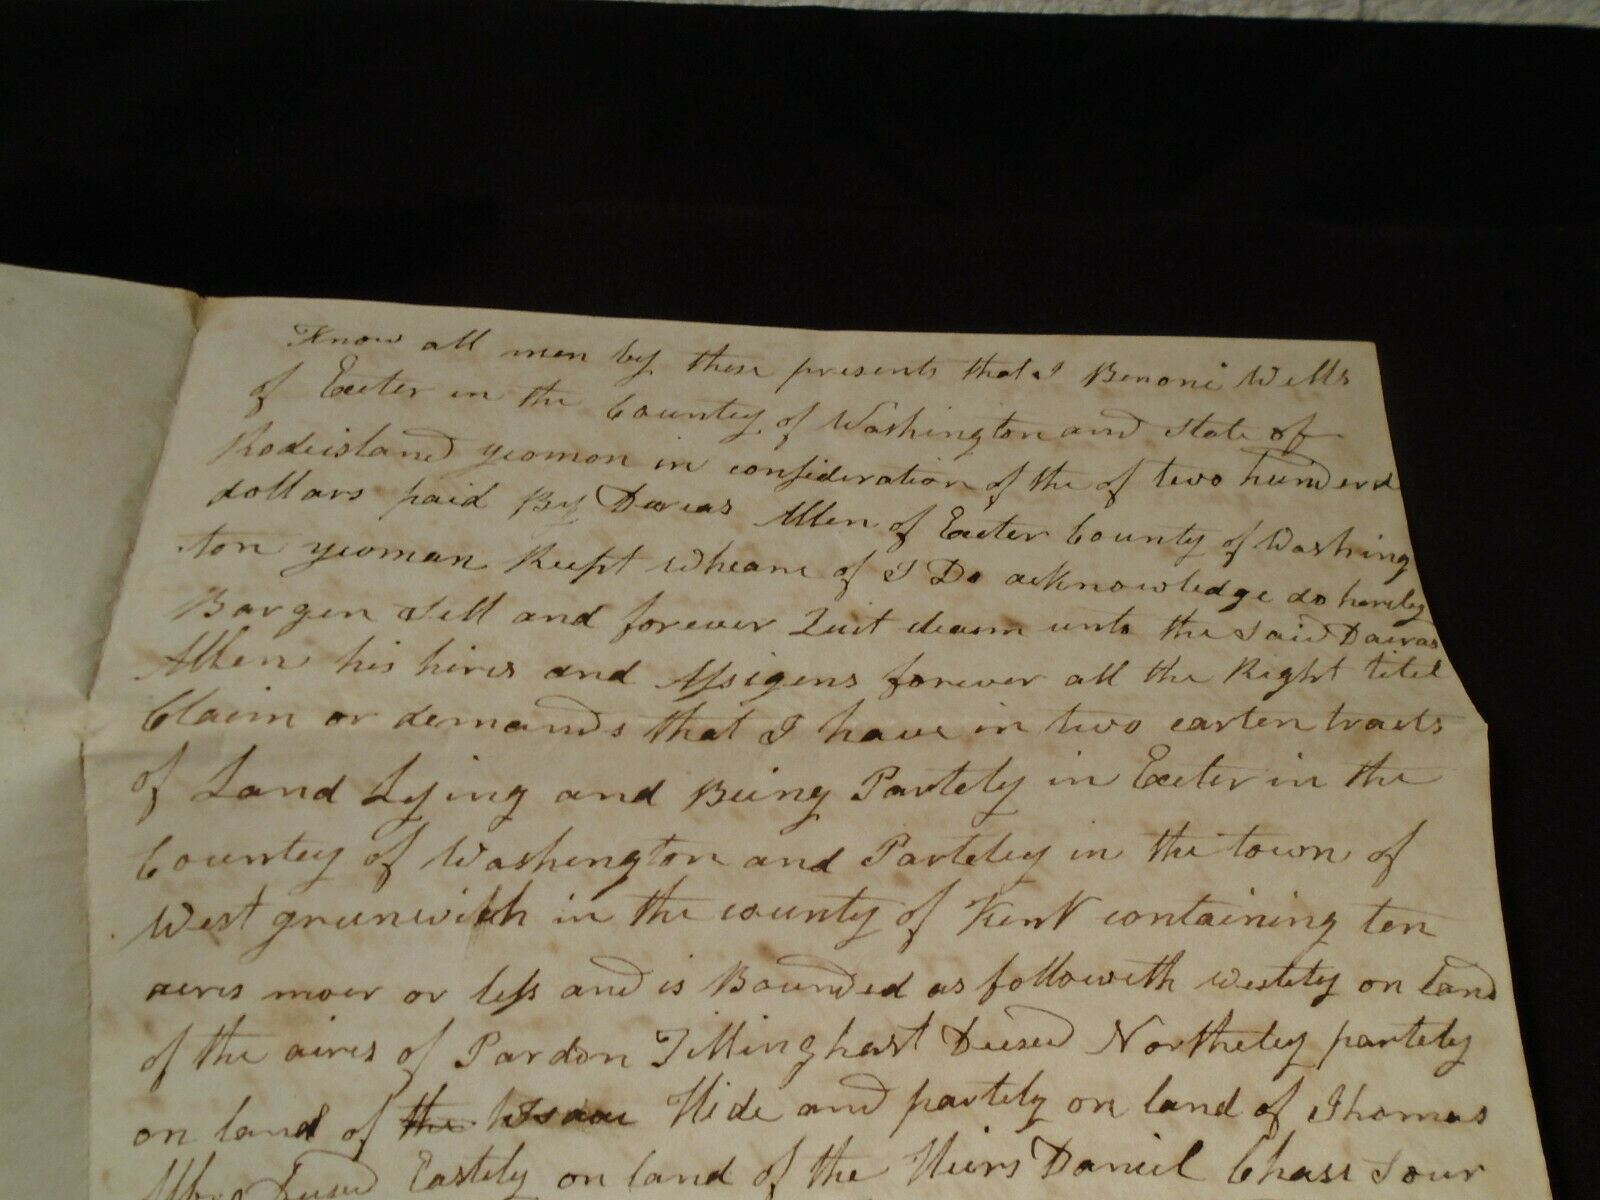 Know all men by these presents that I Benoni Wells
of Exeter in the County of Washington and State of
Rodeisland yeomon in consideration of the of two hunderd
dollars paid By Allen of Exeter County of Washing
ton yeoman Wheare of I Do acknowledge do hereby
Bargen Sell and forever Quit cleam unto the Said
Allen his hires and Assigens forever all the Right titel
Claim or demands that I have in two carten tracts
of Land Lying and Being Partely in Exeter in the
County of Washington and Parteley in the town of
West grunwich in the county of Kent containing ten
acres moer or less and is Bounded as followeth westely on land
of the aires of Pardon Tillinghast Northeley partely
on land of the Isaac Hide and partely on land of Thomas
Eastely on land of the Heirs Daniel Chase